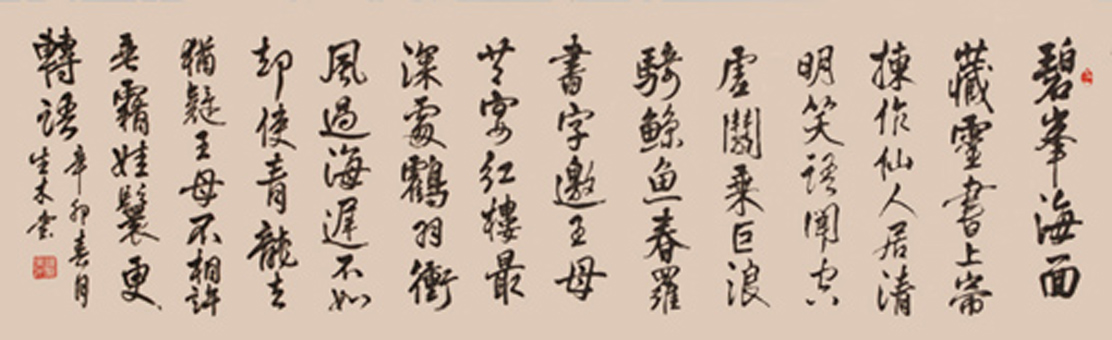 碧峯海面
藏靈書上帝
揀作仙人居清
明笑語聞空
虛鬭乘巨浪
騎鯨魚春羅
書字邀王母
共宴紅樓最
深處鶴羽衝
風過海遲不如
却使青龍去
猶疑王母不相許
垂霧娃鬟更
轉語
辛卯春月
生木